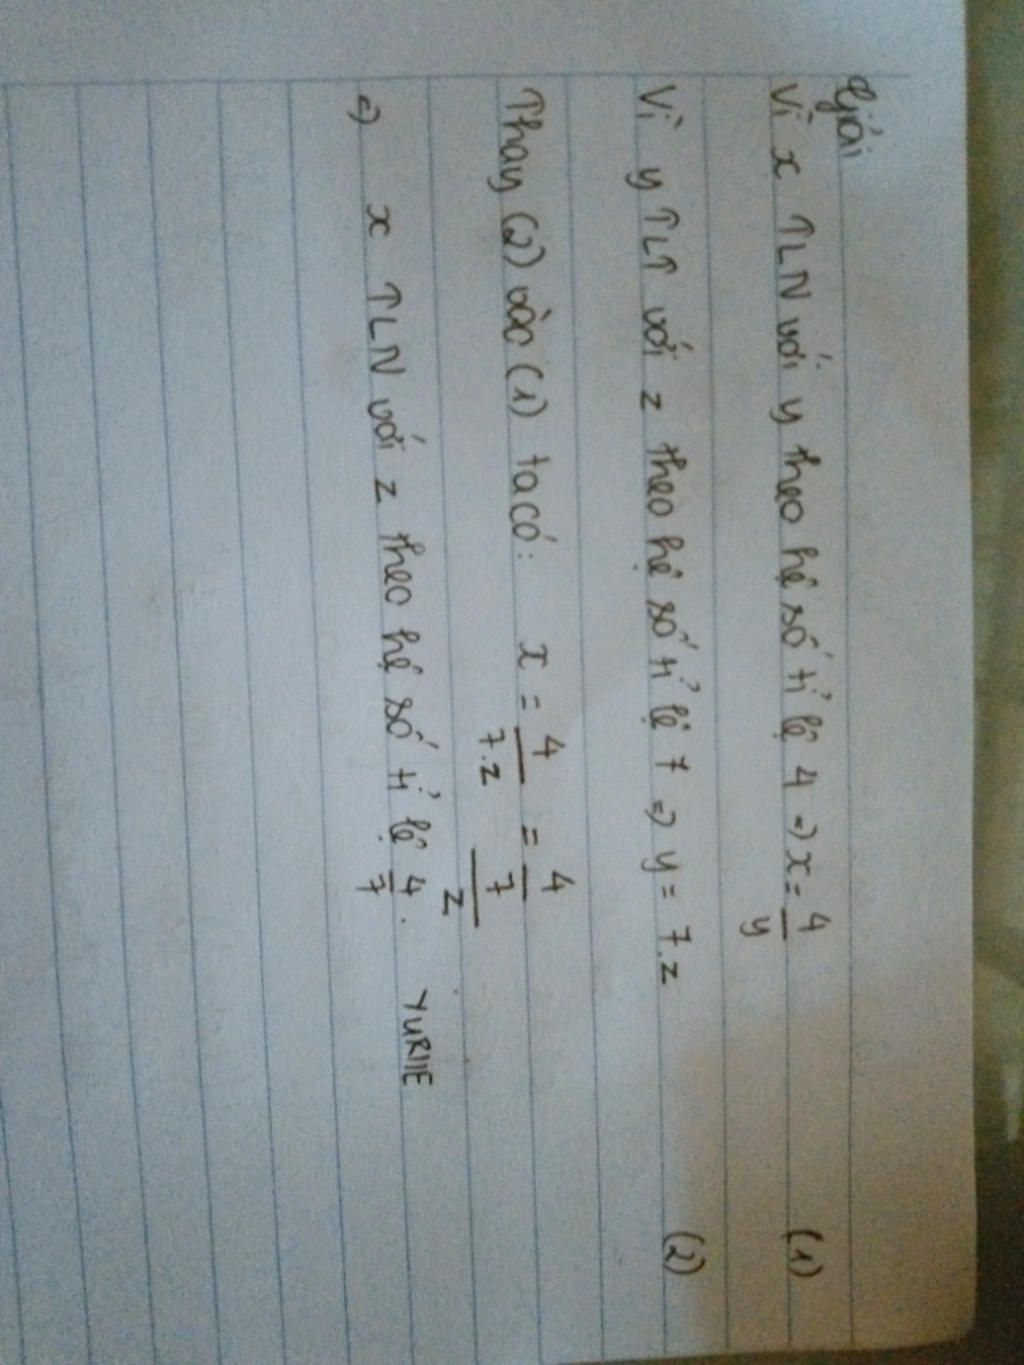 Giải
Vì x TLN với y theo hệ số tỉ lệ 4 => x = 4/y (1)
Vì y TLT với z theo hệ số tỉ lệ 7 => y = 7.z (2)
Thay (2) vào (1) ta có: x = 4/7.z = 4/7/z
=) x TLN với z theo hệ số tỉ lệ 4/7. YURIIE